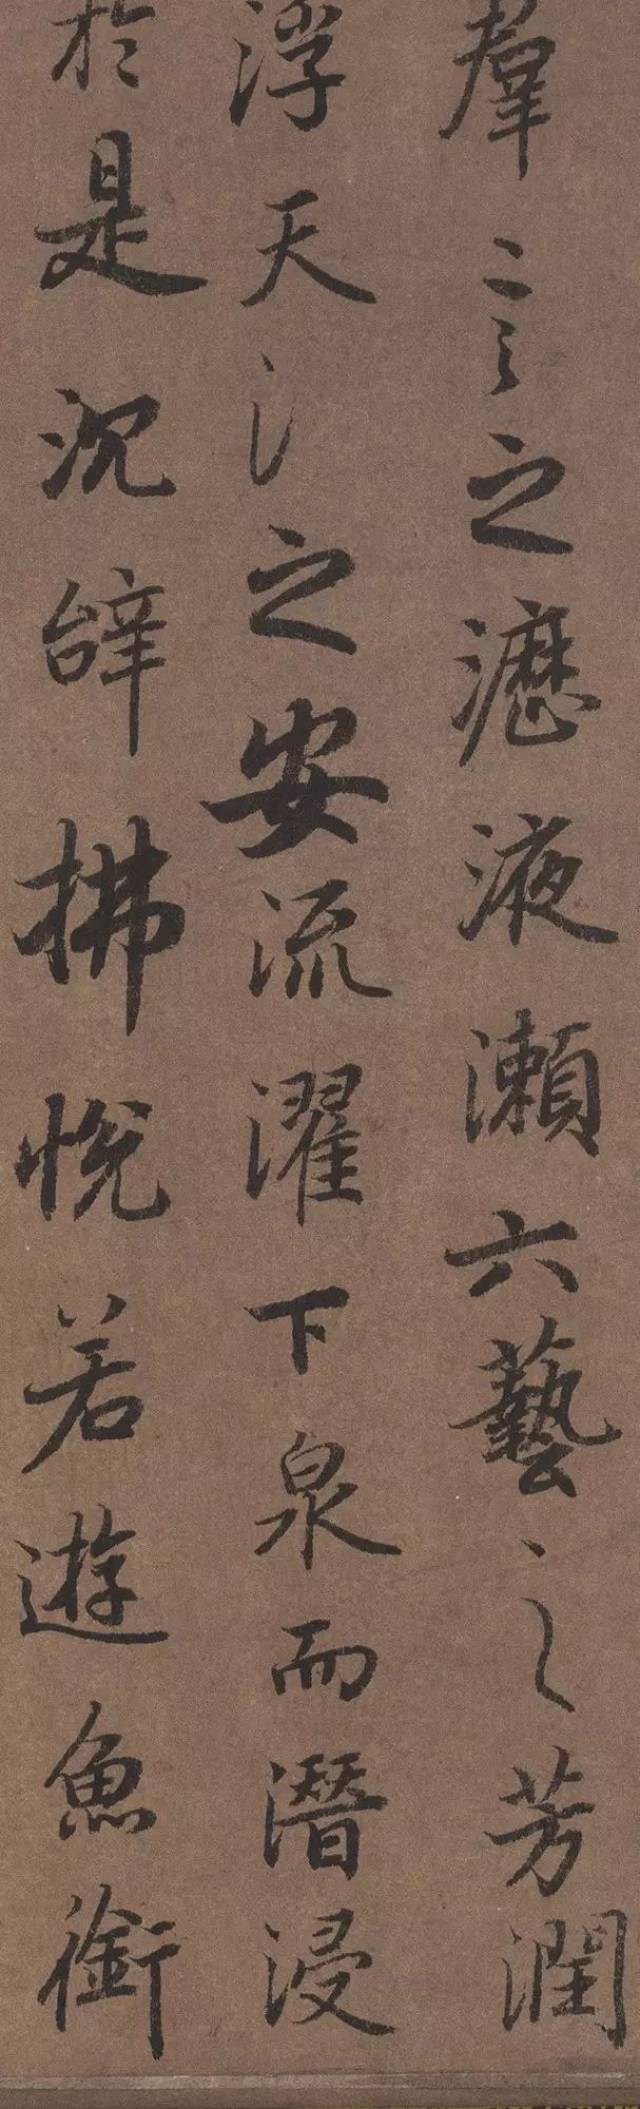 羣言之瀝液瀨六藝之芳潤
浮天氵之安流濯下泉而潛浸
於是沉辝拂悅若遊魚銜